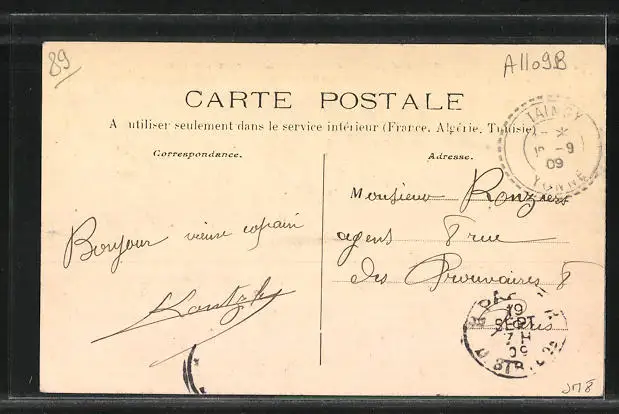 89
A1109B
CARTE POSTALE
A utiliser seulement dans le service intérieur (France, Algérie, Tunisie)
Correspondance.
Adresse.
TAINGY
-9
09
YONNE
Monsieur
agent 8 rue
des Prouvaires 8
Paris
Bonjour vieux copain
19
SEPT
7 H
09